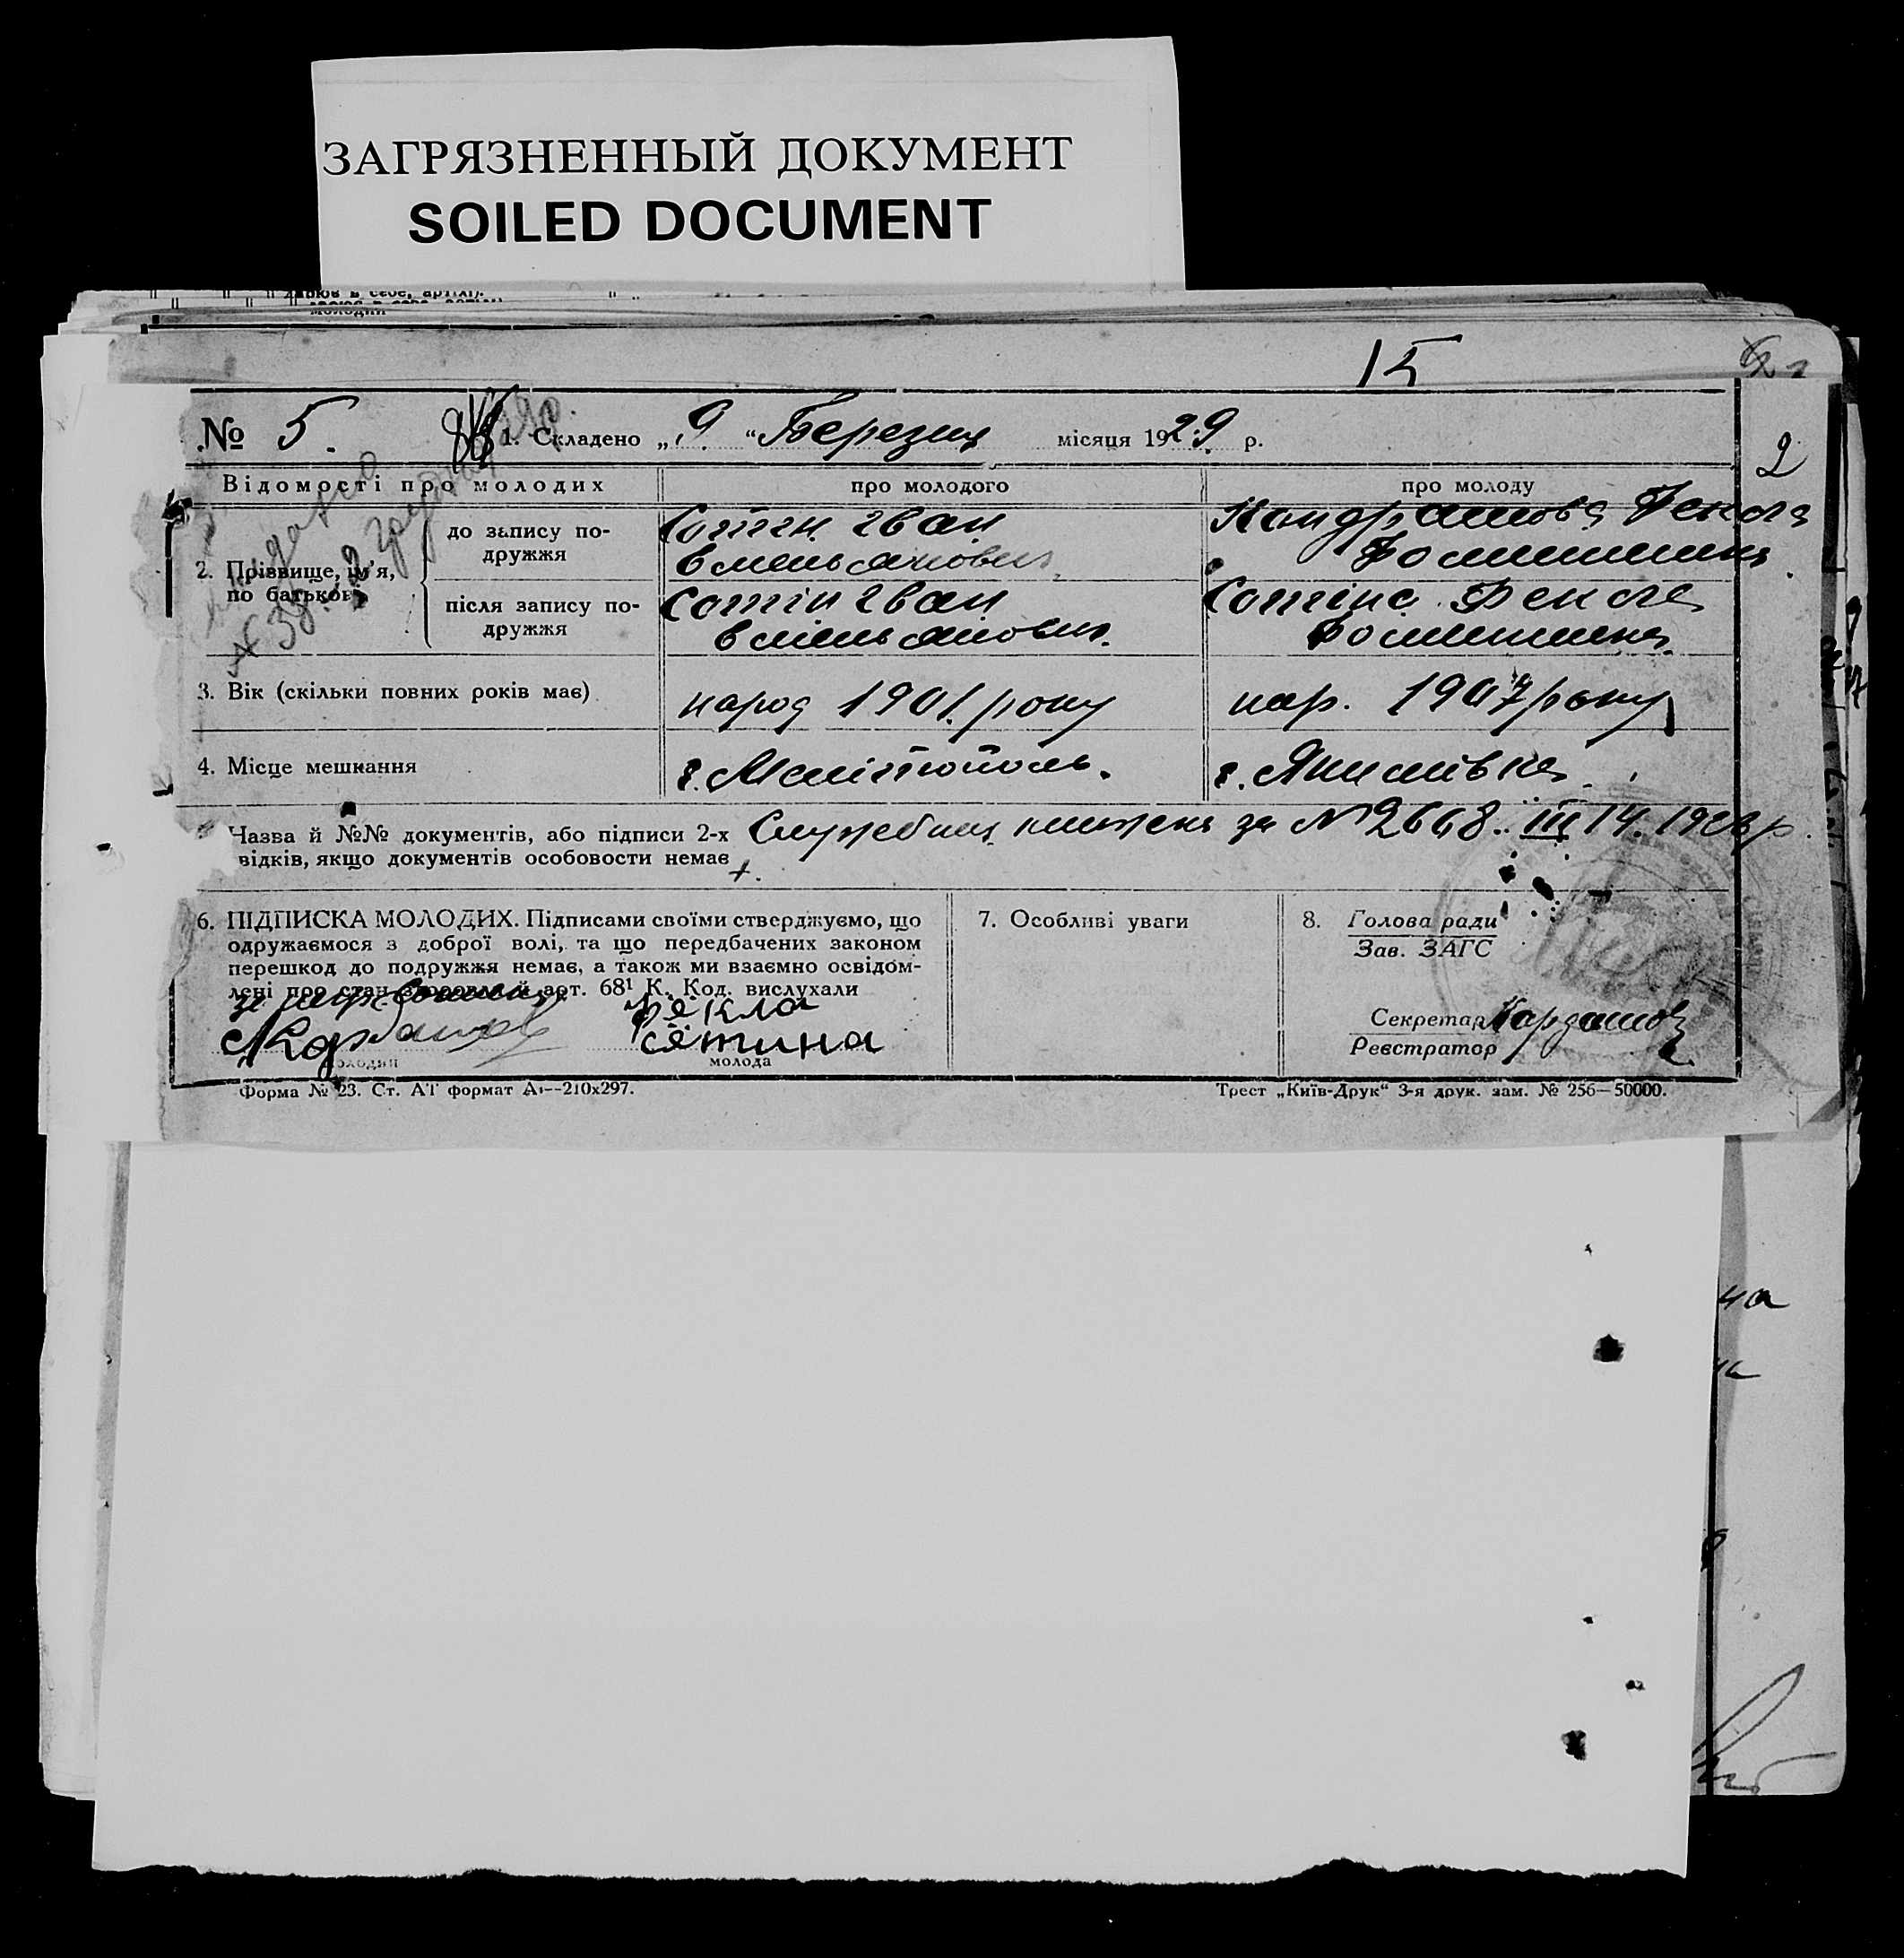 ЗАГРЯЗНЕННЫЙ ДОКУМЕНТ
SOILED DOCUMENT
15
№ 5. 1. Складено „9“ Березня місяця 1929 р.
2
Відомості про молодих про молодого про молоду
2. Прізвище, ім'я, по батькові
до запису подружжя
Сотін Іван
Емельянович
Кондрашова Фекла
Фоминишна
після запису подружжя
Сотін Іван
Емельянович
Сотіна Фекла
Фоминишна
3. Вік (скільки повних років має) народ 1901 року нар. 1907 року
4. Місце мешкання г. Мелітополь. с. Якимівка
Назва й №№ документів, або підписи 2-х Служебна книжка за № 2648 III 14. р.
відків, якщо документів особовости немає
6. ПІДПИСКА МОЛОДИХ. Підписами своїми стверджуємо, що
одружаємося з доброї волі, та що передбачених законом
перешкод до подружжя немає, а також ми взаємно освідом-
лені про стан здоровля й арт. 68¹ К. Код. вислухали
Фёкла
сётина
молода
7. Особливі уваги
8. Голова ради
Зав. ЗАГС
Секретар Кардашов
Реєстратор
Форма № 23. Ст. АТ формат А₄—210х297.
Трест „Київ-Друк“ 3-я друк. зам. № 256—50000.